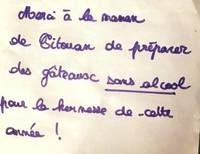 Merci à la maman
de Titouan de préparer
des gâteaux sans alcool
pour la kermesse de cette
année !